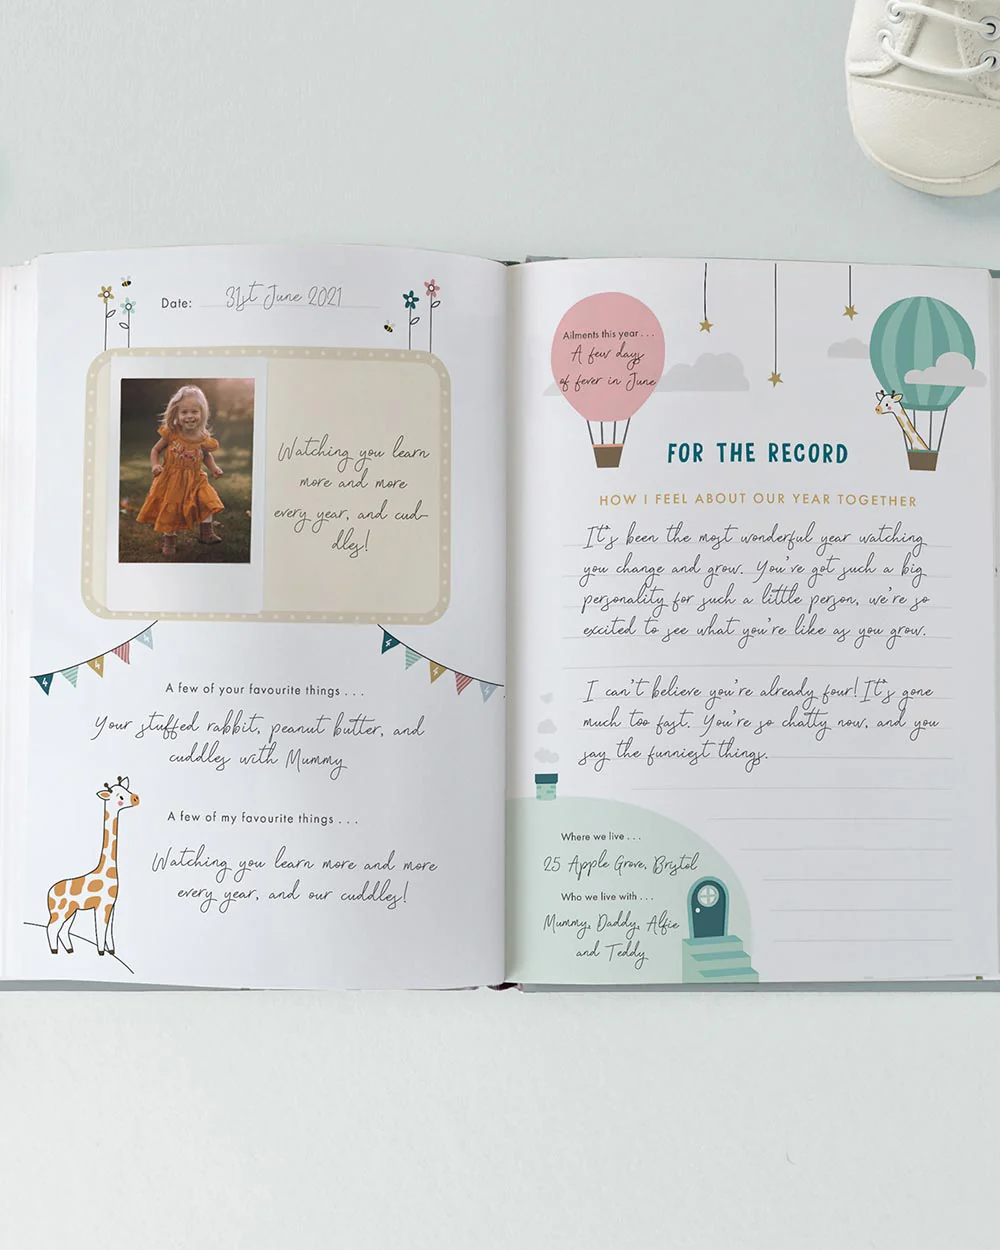 Date: 31st June 2021
Watching you learn
more and more
every year, and cud-
dles!
4 4
4 4
A few of your favourite things . . .
Your stuffed rabbit, peanut butter, and
cuddles with Mummy
A few of my favourite things . . .
Watching you learn more and more
every year, and our cuddles!
Ailments this year . . .
A few days
of fever in June
FOR THE RECORD
HOW I FEEL ABOUT OUR YEAR TOGETHER
It's been the most wonderful year watching
you change and grow. You've got such a big
personality for such a little person, we're so
excited to see what you're like as you grow.
I can't believe you're already four! It's gone
much too fast. You're so chatty now, and you
say the funniest things.
Where we live . . .
25 Apple Grove, Bristol
Who we live with . . .
Mummy, Daddy, Alfie
and Teddy